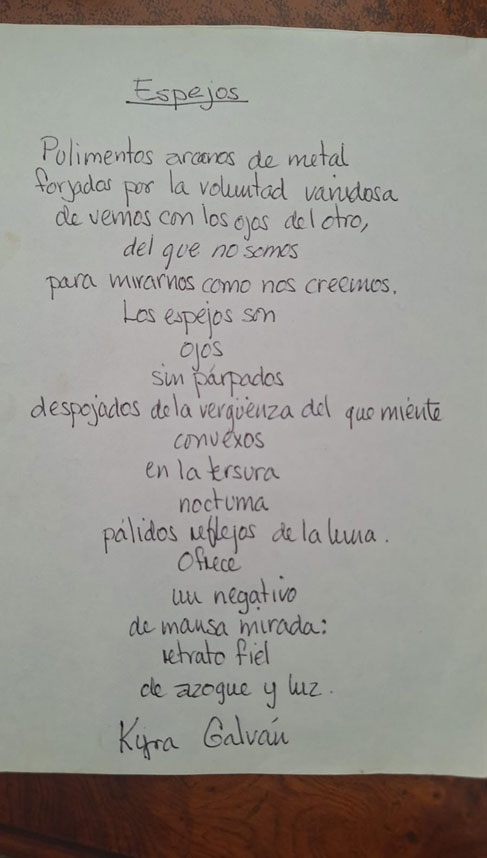 Espejos
Polimentos arcanos de metal
forjados por la voluntad vanidosa
de vernos con los ojos del otro,
del que no somos
para mirarnos como nos creemos.
Los espejos son
ojos
sin párpados
despojados de la vergüenza del que miente
convexos
en la tersura
nocturna
pálidos reflejos de la luna.
Ofrece
un negativo
de mansa mirada:
retrato fiel
de azogue y luz.
Kyra Galván